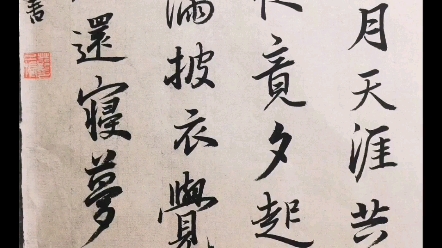 月天涯共
竟夕起
滿披衣覺
還寢夢
書